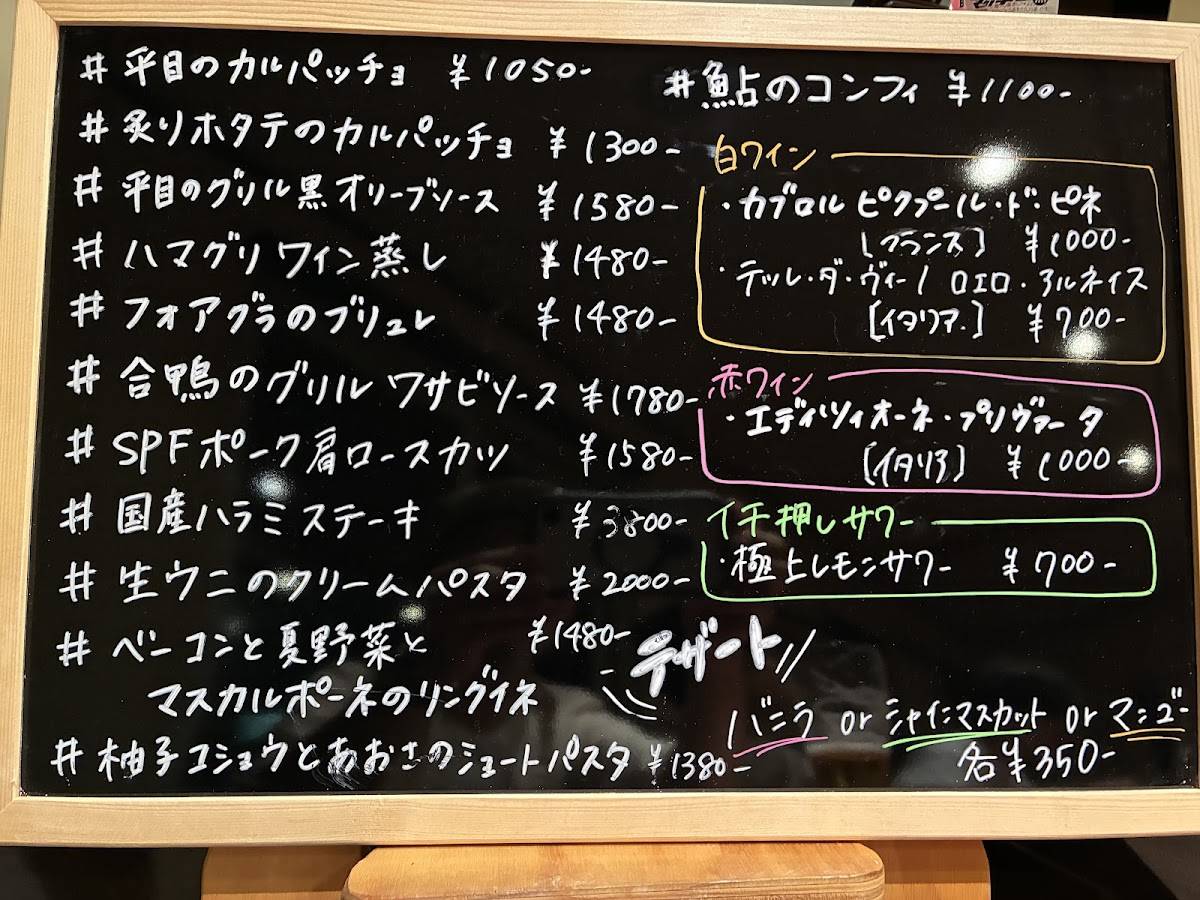 # 平目のカルパッチョ ¥1050-
# 炙りホタテのカルパッチョ ¥1300-
# 平目のグリル黒オリーブソース ¥1580-
# ハマグリワイン蒸し ¥1480-
# フォアグラのブリュレ ¥1480-
# 合鴨のグリル ワサビソース ¥1780-
# SPFポーク肩ロースカツ ¥1580-
# 国産ハラミステーキ ¥3800-
# 生ウニのクリームパスタ ¥2000-
# ベーコンと夏野菜と ¥1480-
マスカルポーネのリングイネ
# 柚子コショウとあおさのショートパスタ ¥1380-
# 鮎のコンフィ ¥1100-
白ワイン
・カブロル ピクプール・ド・ピネ
[フランス] ¥1000-
・テッル・ダ・ヴィーノ ロエロ・アルネイス
[イタリア.] ¥700-
赤ワイン
・エディツィオーネ・プリヴァータ
[イタリア] ¥1000-
イチ押しサワー
・極上レモンサワー ¥700-
デザート
バニラ or シャインマスカット or マンゴー
各¥350-